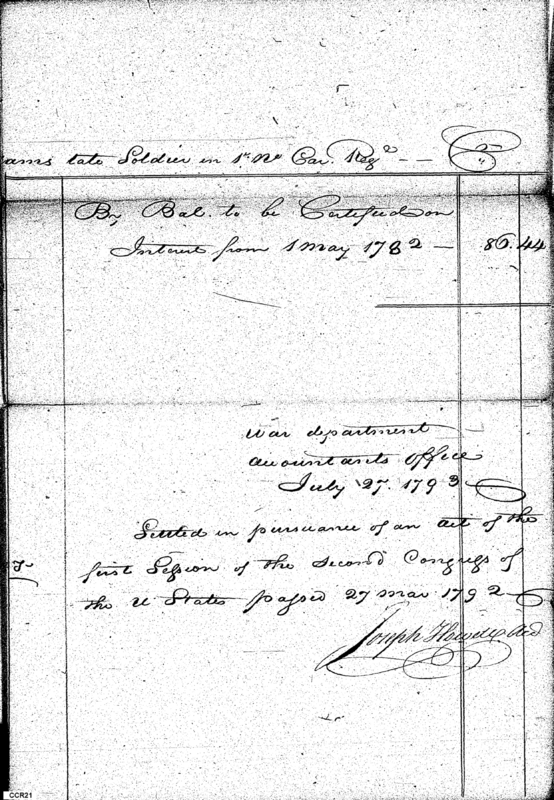 ams late Soldier in 1st No Car. Regt — — Cr
By Bal. to be Certified on
Interest from 1 May 1782 — 86.44
War department
Accountants Office
July 27. 1793
Settled in pursuance of an act of the
first Session of the second Congress of
the U States passed 27 Mar 1792
Joseph Howell Act
CCR21